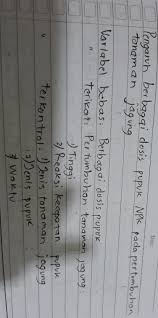 Pengaruh berbagai dosis pupuk NPK pada pertumbuhan
tanaman jagung
Variabel bebas : Berbagai dosis pupuk
" terikat : Pertumbuhan tanaman jagung
1) Tinggi
2) Reaksi kecepatan pupuk
" terkontrol : 1) Jenis tanaman jagung
2) Jenis pupuk
3) Waktu